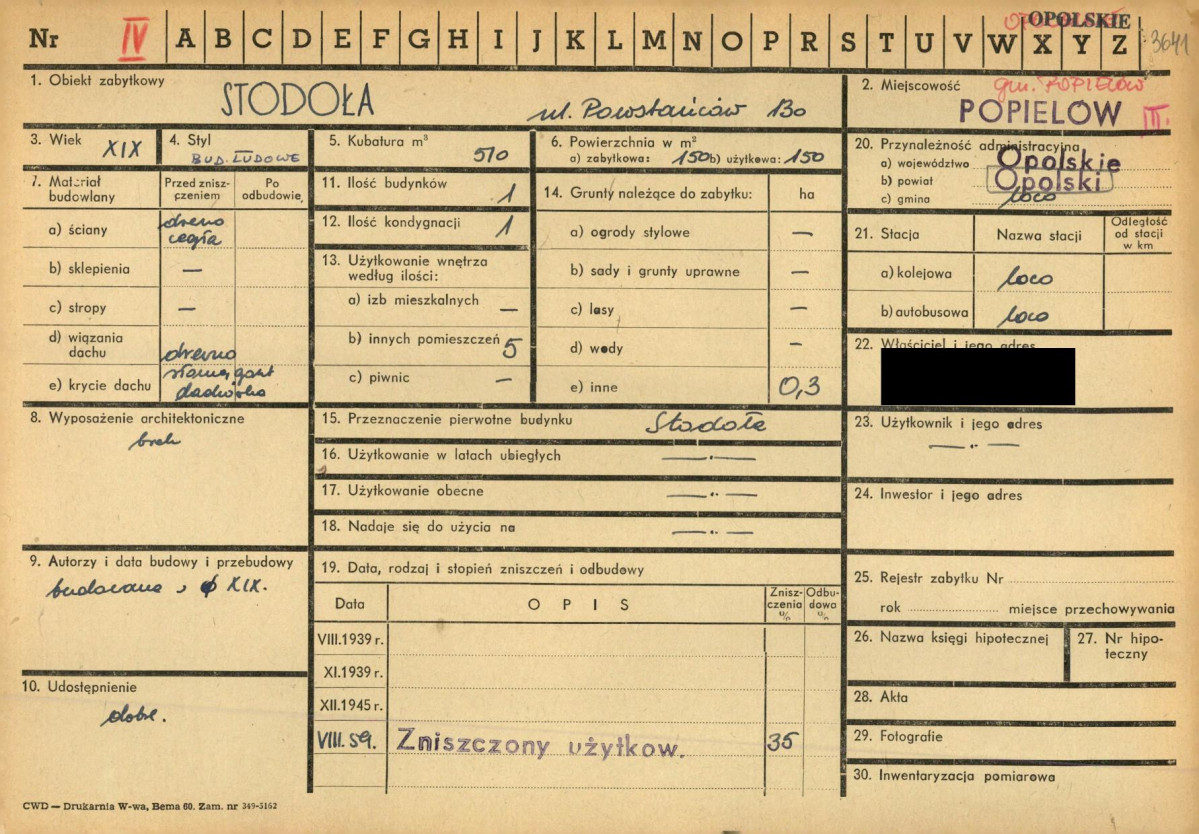 OPOLSKIE
Nr IV A B C D E F G H I J K L M N O P R S T U V W X Y Z 3641
1. Obiekt zabytkowy
STODOŁA ul. Powstańców 130
2. Miejscowość gm. POPIELÓW
POPIELÓW III.
3. Wiek XIX
4. Styl
BUD. LUDOWE
5. Kubatura m³
510
6. Powierzchnia w m²
a) zabytkowa: 150 b) użytkowa: 150
7. Materiał budowlany
Przed zniszczeniem
Po odbudowie
a) ściany drewno
cegła
b) sklepienia —
c) stropy —
d) wiązania
dachu drewno
e) krycie dachu słoma, gont
dachówka
8. Wyposażenie architektoniczne
brak
9. Autorzy i data budowy i przebudowy
budowana, XIX.
10. Udostępnienie
dobre.
11. Ilość budynków 1
12. Ilość kondygnacji 1
13. Użytkowanie wnętrza
według ilości:
a) izb mieszkalnych —
b) innych pomieszczeń 5
c) piwnic —
14. Grunty należące do zabytku: ha
a) ogrody stylowe —
b) sady i grunty uprawne —
c) lasy —
d) wody —
e) inne 0,3
15. Przeznaczenie pierwotne budynku Stodoła
16. Użytkowanie w latach ubiegłych —.—
17. Użytkowanie obecne —..—
18. Nadaje się do użycia na —..—
19. Data, rodzaj i stopień zniszczeń i odbudowy
Data OPIS Zniszczenia % Odbudowa %
VIII.1939 r.
XI.1939 r.
XII.1945 r.
VIII. 59. Zniszczony użytkow. 35
20. Przynależność administracyjna
a) województwo Opolskie
b) powiat Opolski
c) gmina loco
21. Stacja Nazwa stacji Odległość od stacji w km
a) kolejowa loco
b) autobusowa loco
22. Właściciel i jego adres
23. Użytkownik i jego adres
—..—
24. Inwestor i jego adres
25. Rejestr zabytku Nr
rok miejsce przechowywania
26. Nazwa księgi hipotecznej
27. Nr hipo-
teczny
28. Akta
29. Fotografie
30. Inwentaryzacja pomiarowa
CWD — Drukarnia W-wa, Bema 60. Zam. nr 349-5162